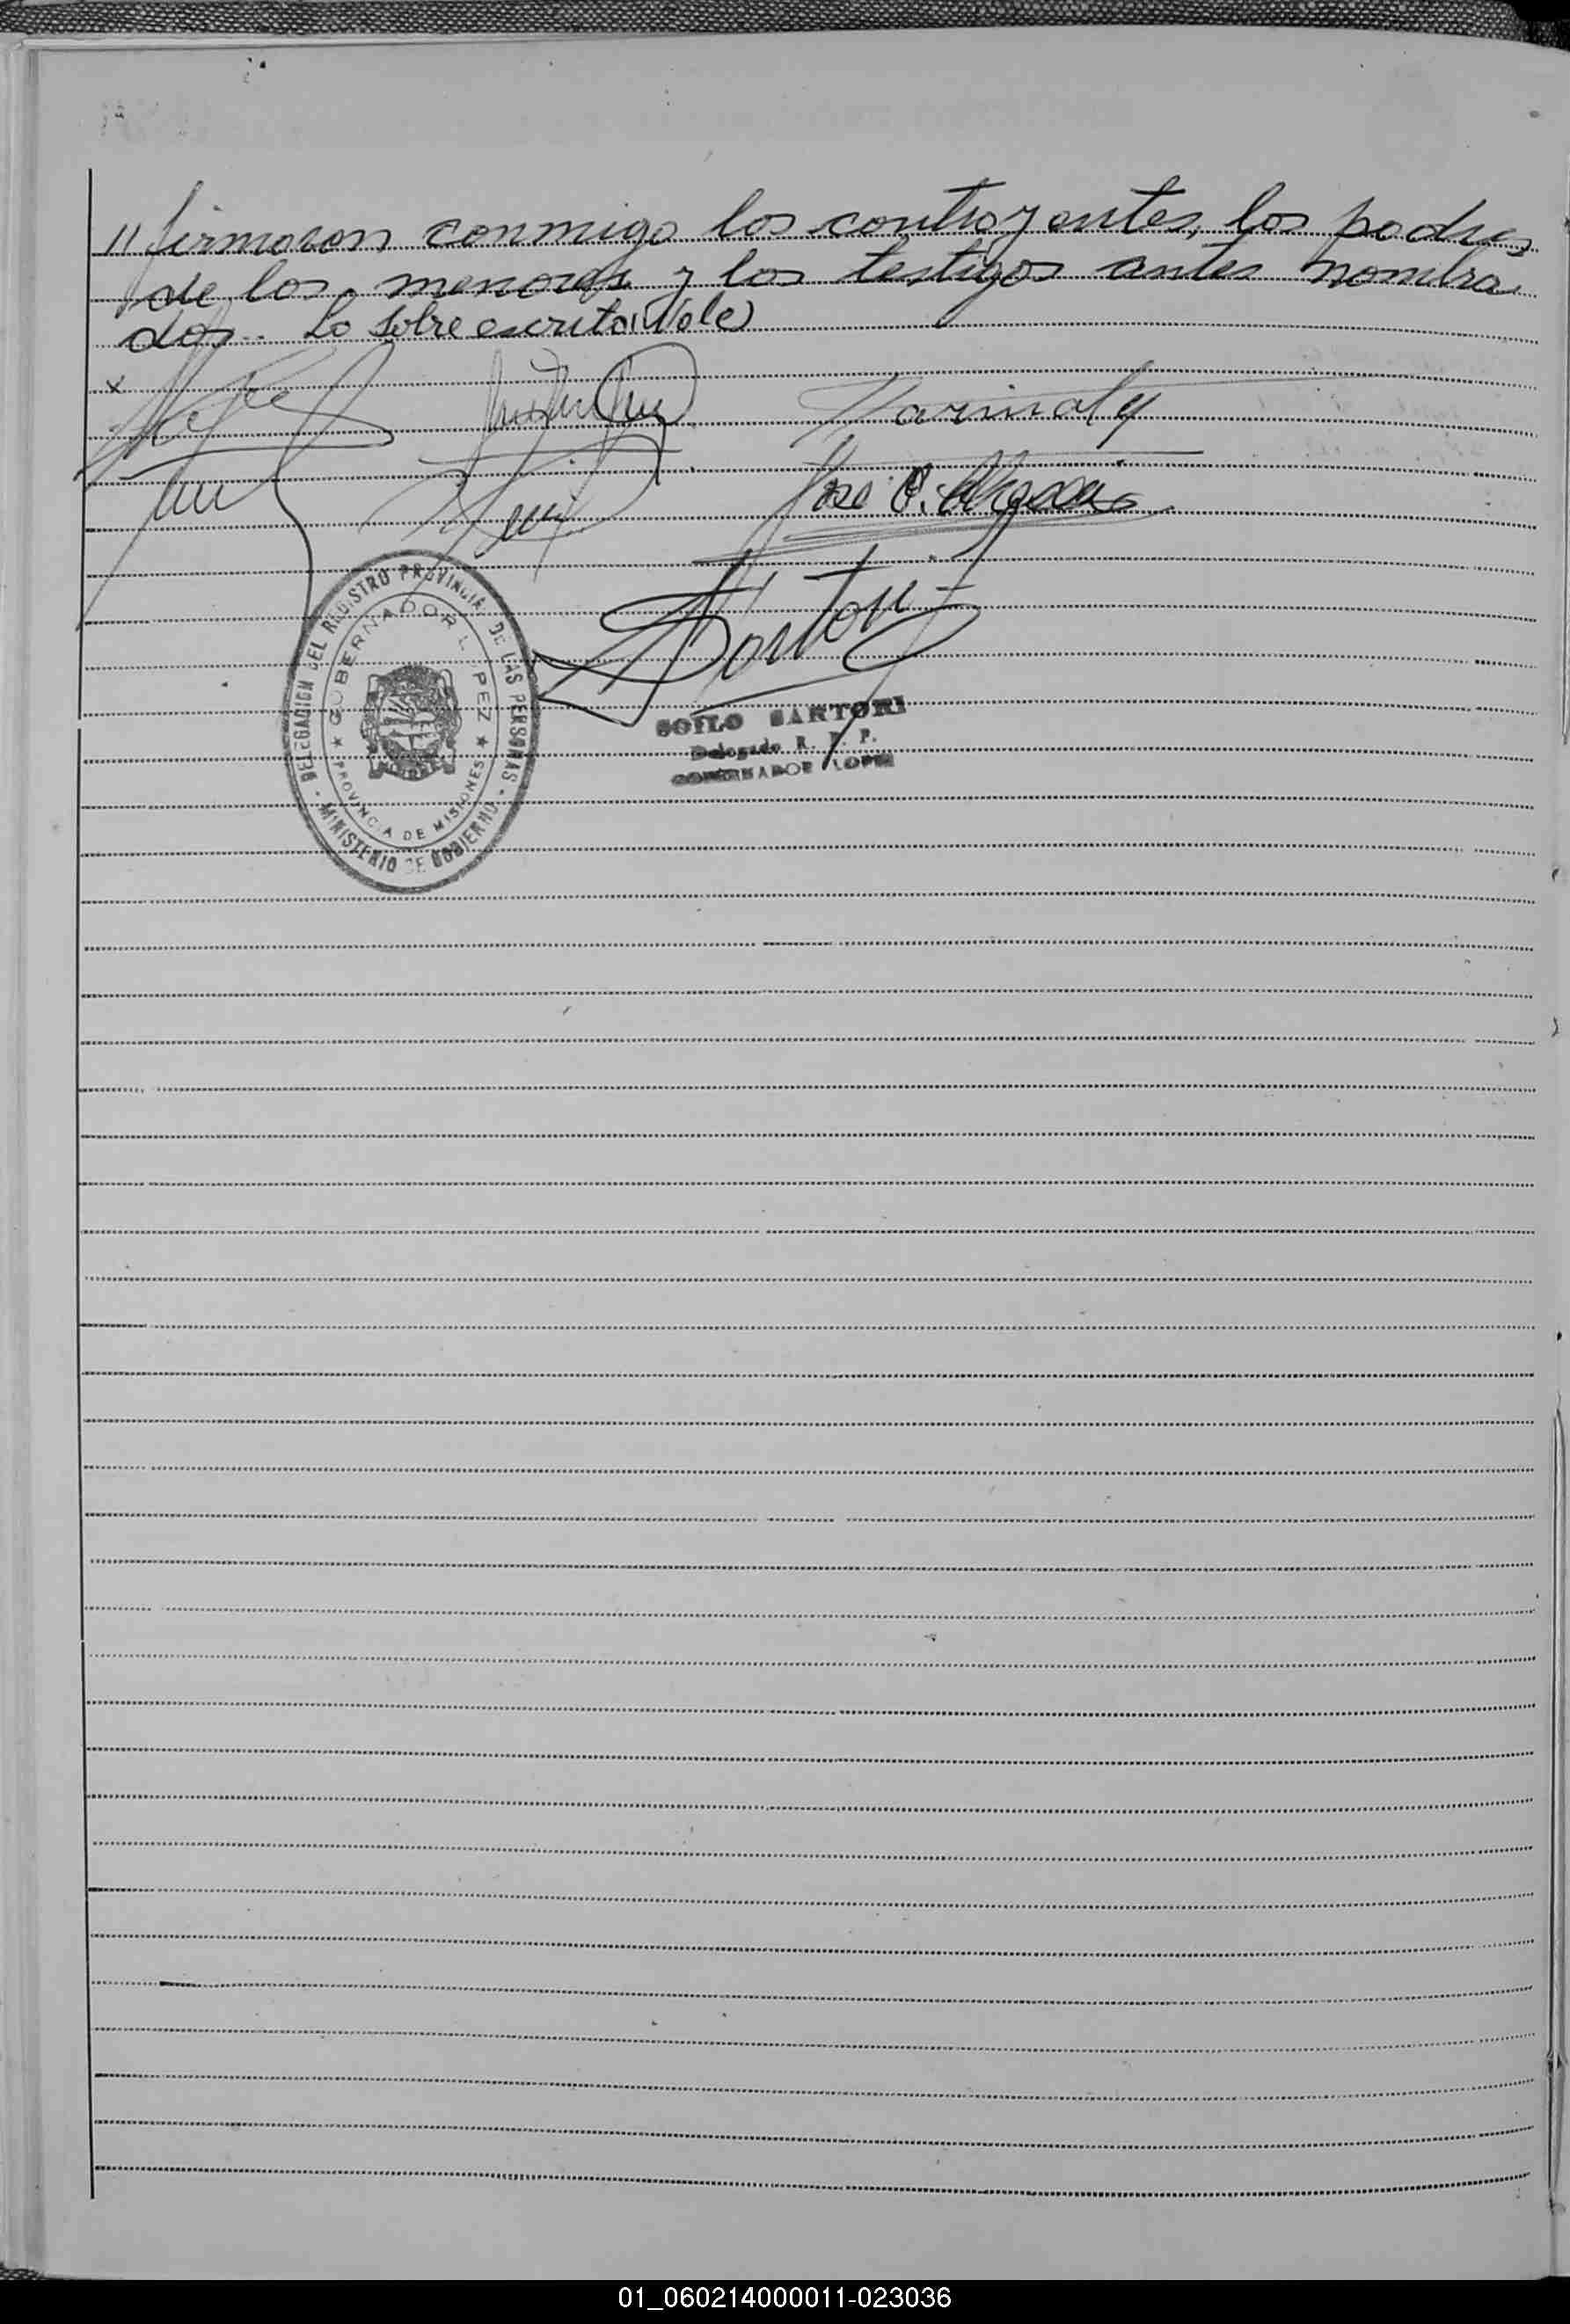 // firmaron conmigo los contrayentes, los padres
de los menores y los testigos antes nombra-
dos.- Lo sobre escrito: Vale)
x
Jose
Sartori
DELEGACION DEL REGISTRO PROVINCIAL DE LAS PERSONAS
GOBERNADOR LOPEZ
PROVINCIA DE MISIONES
MINISTERIO DE GOBIERNO
SOILO SARTORI
Delegado R. P. P.
GOBERNADOR LOPEZ
01_060214000011-023036